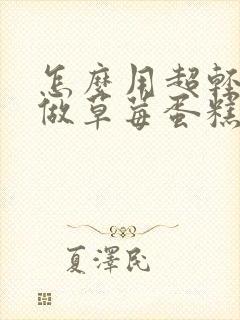 怎麼用超輕
做草莓蛋糕
夏澤民